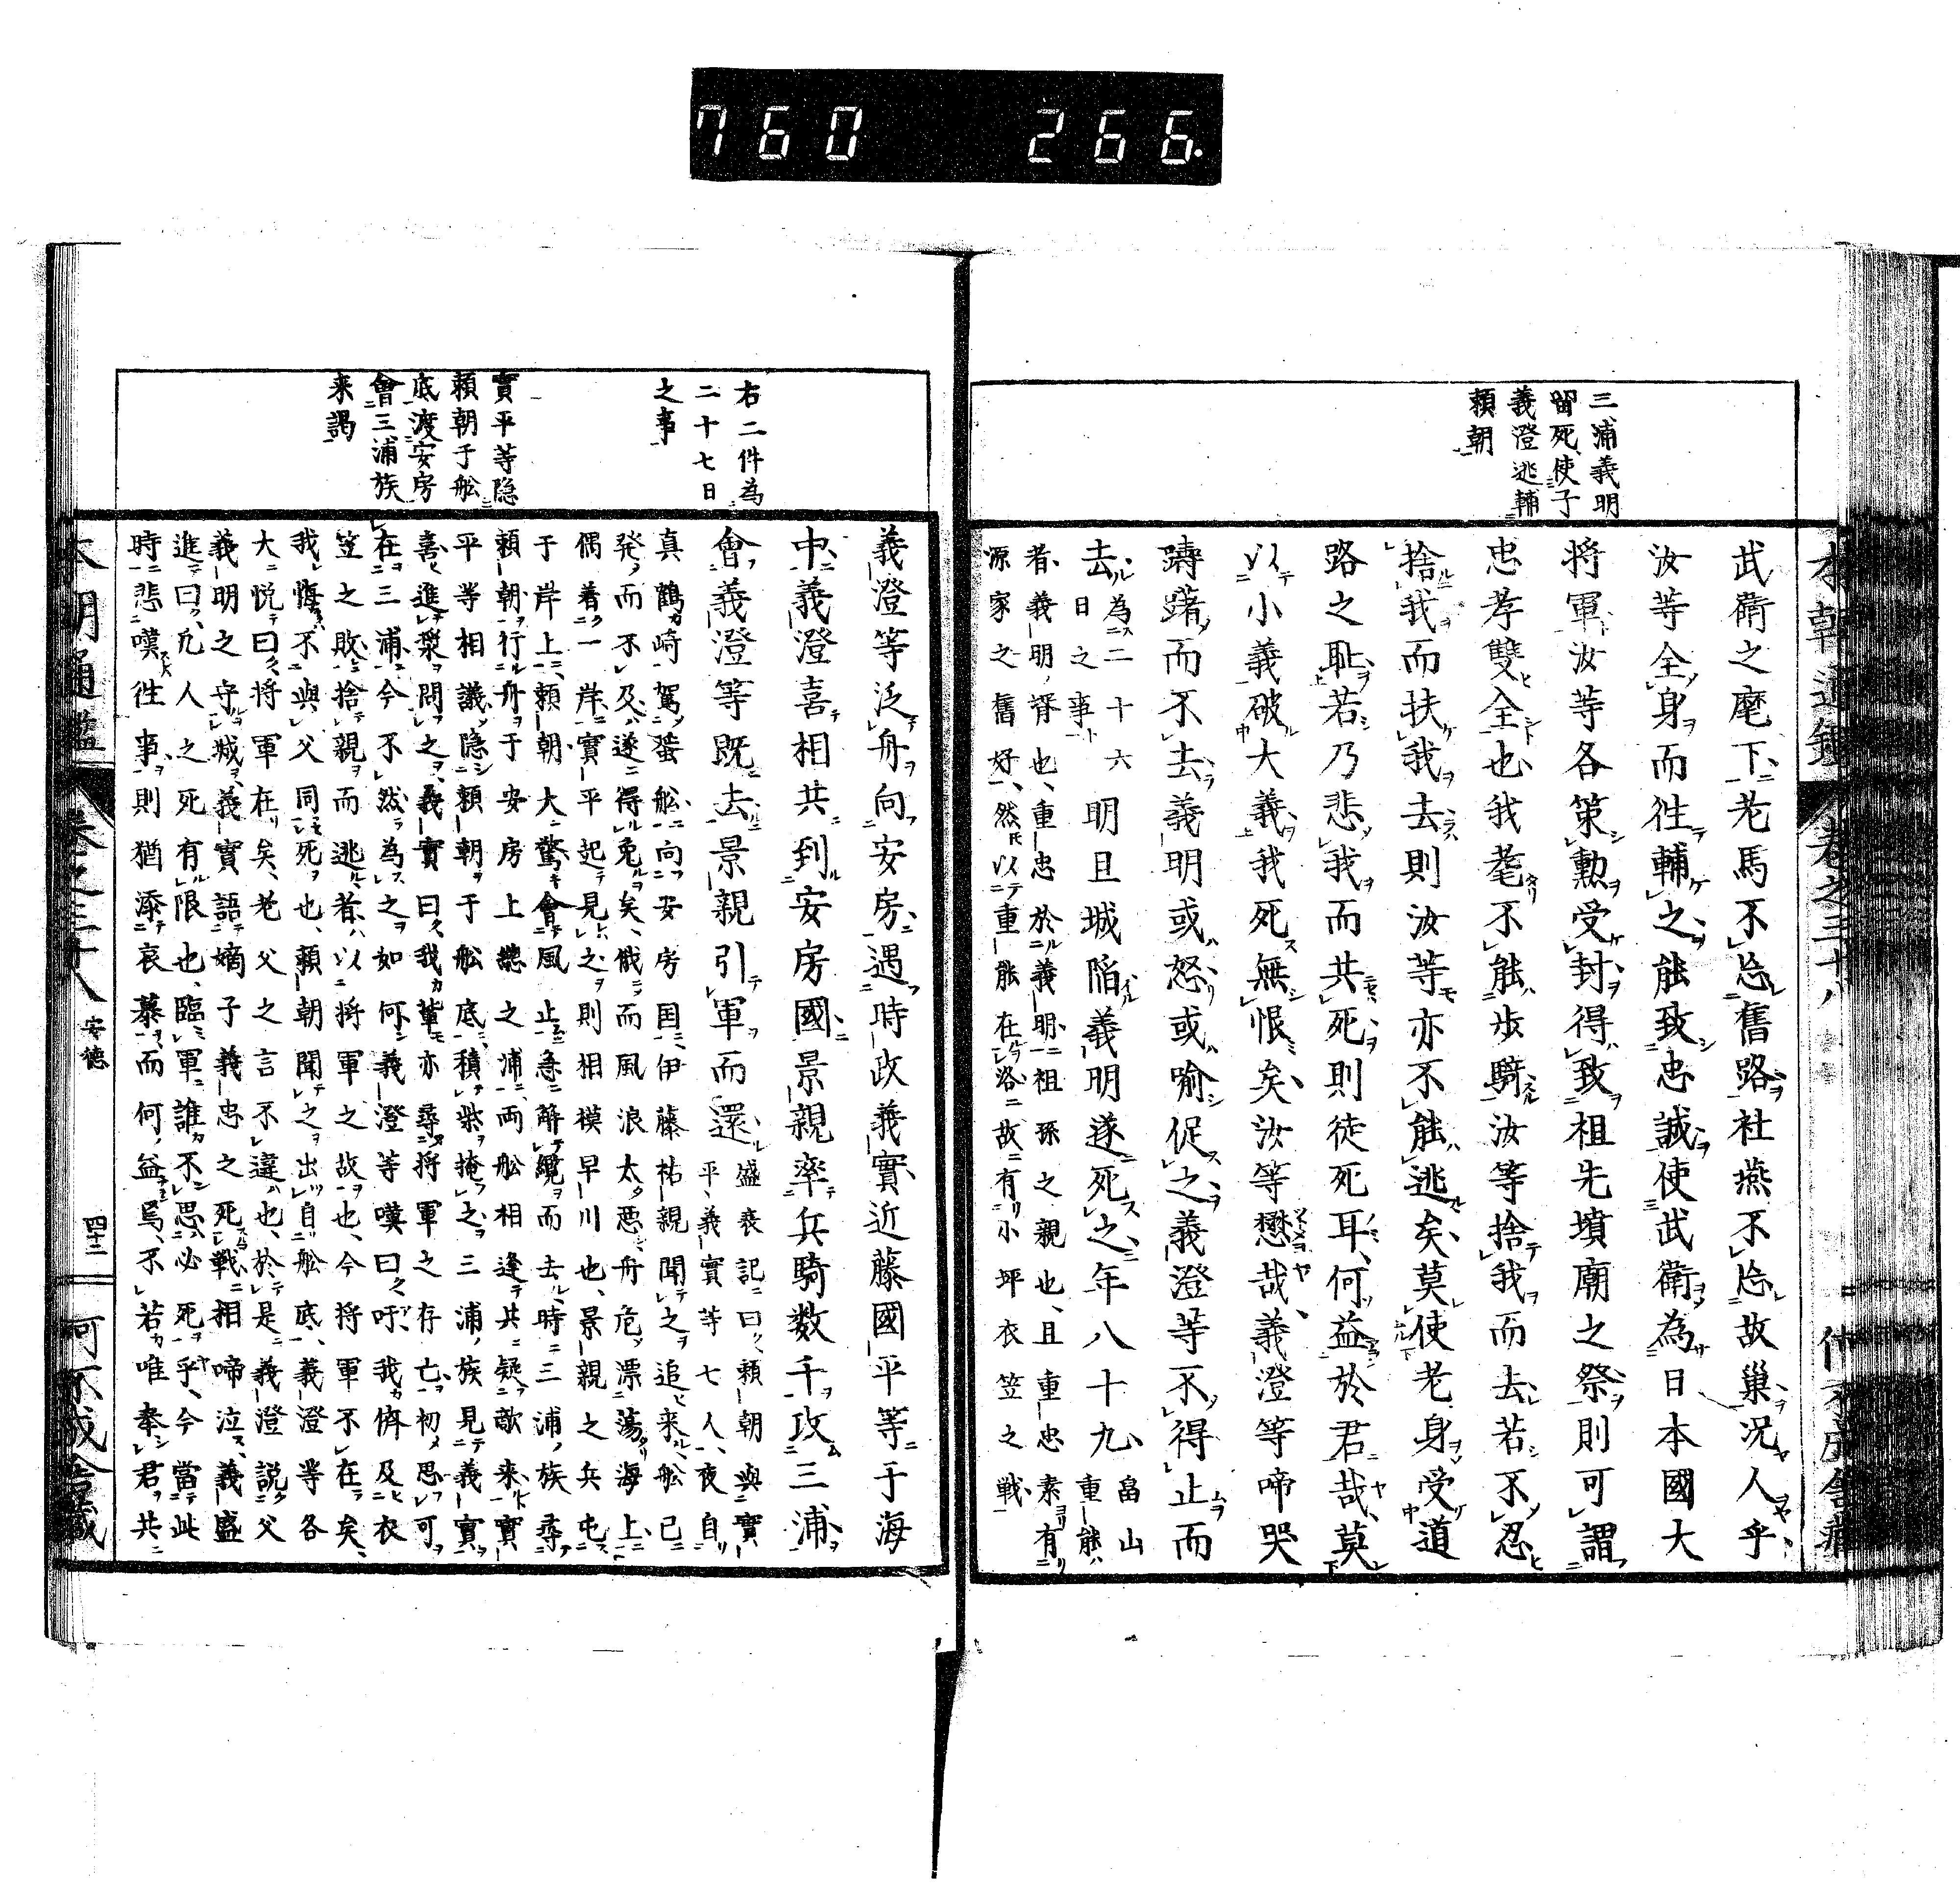 760 266.
三浦義明
留死使子
義澄逃輔
頼朝
武衛之麾下老馬不忘舊路社燕不忘故巣况人乎
汝等全身而往輔之能致忠誠使武衛為日本國大
将軍汝等各策勲受封得致祖先墳廟之祭則可謂
忠孝雙全也我耄不能歩騎汝等捨我而去若不忍
捨我而扶我去則汝等亦不能逃矣莫使老身受道
路之恥若乃悲我而共死則徒死耳何益於君哉莫
以小義破大義我死無恨矣汝等懋哉義澄等啼哭
躊躇而不去義明或怒或喩促之義澄等不得止而
去為二十六
日之事
明旦城陥義明遂死之年八十九畠山
重能
者義明壻也重忠於義明祖孫之親也且重忠素有
源家之舊好然以重能在洛故有小坪衣笠之戦
右二件為
二十七日
之事
實平等隐
頼朝于舩
底渡安房
會三浦族
来謁
義澄等泛舟向安房遇時政義實近藤國平等于海
中義澄喜相共到安房國景親率兵騎数千攻三浦
會義澄等既去景親引軍而還盛衰記曰頼朝與實
平義實等七人夜自
真鶴崎駕蜑舩向安房国伊藤祐親聞之追来舩已
発而不及遂得免矣俄而風浪太悪舟危漂蕩海上
偶着一岸實平起見之則相模早川也景親之兵屯
于岸上頼朝大驚會風止急解纜而去時三浦族尋
頼朝行舟于安房上總之浦両舩相逢共疑敵来實
平等相議隐頼朝于舩底積柴掩之三浦族見義實
喜進衆問之義實曰我輩亦尋将軍之存亡初思可
在三浦今不然為之如何義澄等嘆曰吁我儕及衣
笠之敗捨親而逃者以将軍之故也今将軍不在矣
我悔不與父同死也頼朝聞之出自舩底義澄等各
大悦曰将軍在矣老父之言不違也於是義澄説父
義明之守城義實語嫡子義忠之死戦相啼泣義盛
進曰凢人之死有限也臨軍誰不思必死乎今當此
時悲嘆往事則猶添哀慕而何益焉不若唯奉君共
安德
四十二